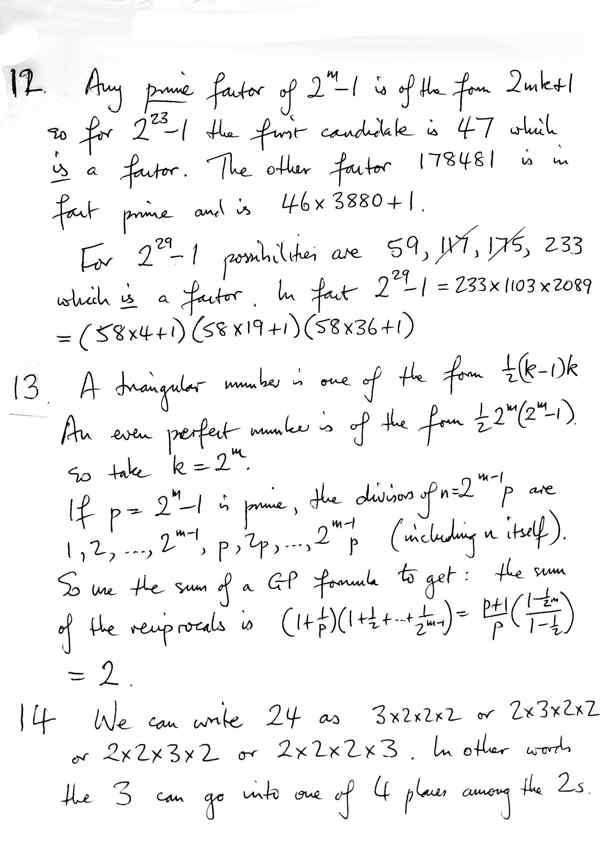 12. Any prime factor of 2^m-1 is of the form 2mk+1
so for 2^23-1 the first candidate is 47 which
is a factor. The other factor 178481 is in
fact prime and is 46×3880+1.
For 2^29-1 possibilities are 59, 117, 175, 233
which is a factor. In fact 2^29-1 = 233×1103×2089
= (58×4+1)(58×19+1)(58×36+1)
13. A triangular number is one of the form ½(k-1)k
An even perfect number is of the form ½2^m(2^m-1).
so take k = 2^m.
If p = 2^m-1 is prime, the divisors of n=2^{m-1}p are
1, 2, ..., 2^{m-1}, p, 2p, ..., 2^{m-1}p (including n itself).
So use the sum of a GP formula to get: the sum
of the reciprocals is (1+1/p)(1+1/2+...+1/2^{m-1}) = (p+1)/p ((1-1/2^m)/(1-1/2))
= 2.
14 We can write 24 as 3×2×2×2 or 2×3×2×2
or 2×2×3×2 or 2×2×2×3. In other words
the 3 can go into one of 4 places among the 2s.